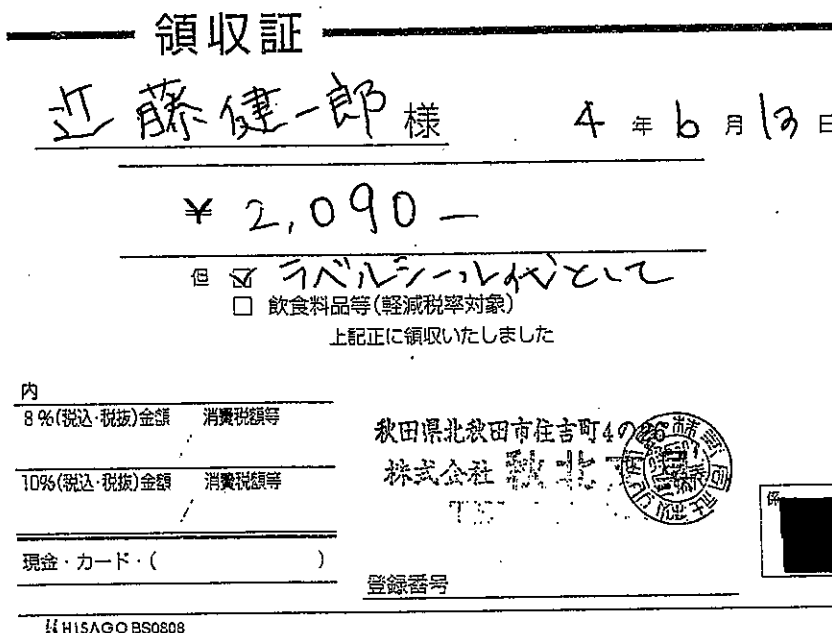 領収証
近藤健一郎 様 4 年 6 月 13 日
¥ 2,090 −
但 ☑ ラベルシール代として
□ 飲食料品等(軽減税率対象)
上記正に領収いたしました
内
8%(税込・税抜)金額 消費税額等
10%(税込・税抜)金額 消費税額等
現金・カード・( )
秋田県北秋田市住吉町4の26
株式会社 秋北
係
登録番号
HISAGO BS0808